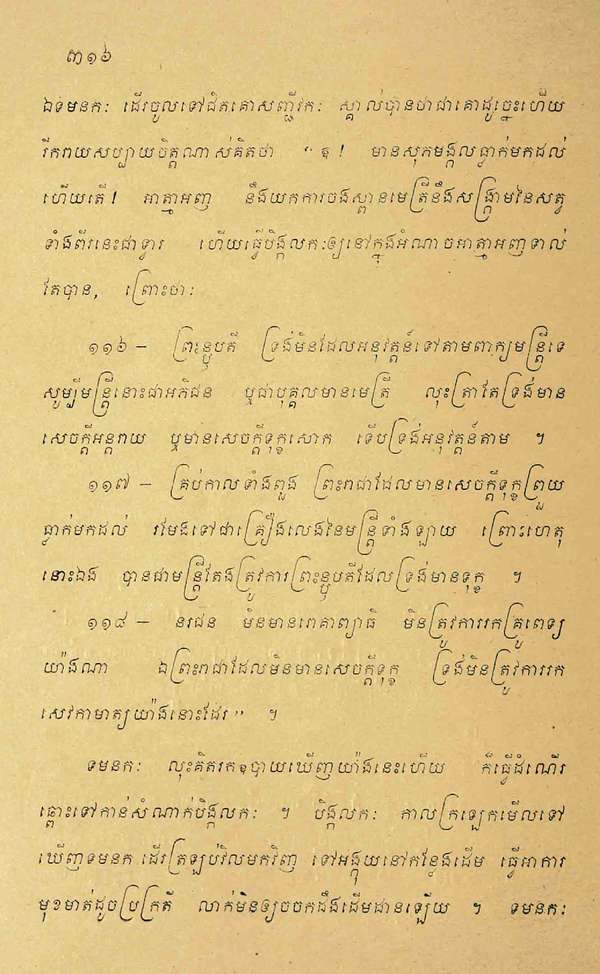 ៣១៦
ឯទមនកៈ ដើរចូលទៅជិតគោសញ្ជីវកៈ ស្គាល់បានថាជាគោដូច្នេះហើយ
រីករាយសប្បាយចិត្តណាស់គិតថា “ ឧ ! មានសុភមង្គលធ្លាក់មកដល់
ហើយតើ ! អាត្មាអញ នឹងយកការចងស្ពានមេត្រីនឹងសង្គ្រាមនៃសត្វ
ទាំងពីរនេះជាទ្វារ ហើយធ្វើបិង្គលកៈឲ្យនៅក្នុងអំណាចអាត្មាអញទាល់
តែបាន, ព្រោះថាៈ
១១៦ – ព្រះខ្មបតី ទ្រង់មិនដែលអនុវត្តន៍ទៅតាមពាក្យមន្ត្រីទេ
សូម្បីមន្ត្រីនោះជាអភិជន ឬជាបុគ្គលមានមេត្រី លុះត្រាតែទ្រង់មាន
សេចក្តីអន្តរាយ ឬមានសេចក្តីទុក្ខសោក ទើបទ្រង់អនុវត្តន៍តាម ។
១១៧ – គ្រប់កាលទាំងពួង ព្រះរាជាដែលមានសេចក្តីទុក្ខព្រួយ
ធ្លាក់មកដល់ រមែងទៅជាគ្រឿងលេងនៃមន្ត្រីទាំងឡាយ ព្រោះហេតុ
នោះឯង បានជាមន្ត្រីតែងត្រូវការព្រះខ្មបតីដែលទ្រង់មានទុក្ខ ។
១១៨ – នរជន មិនមានរោគាព្យាធិ មិនត្រូវការរកគ្រូពេទ្យ
យ៉ាងណា ឯព្រះរាជាដែលមិនមានសេចក្តីទុក្ខ ទ្រង់មិនត្រូវការរក
សេវកាមាត្យយ៉ាងនោះដែរ ” ។
ទមនកៈ លុះគិតរកឧបាយឃើញយ៉ាងនេះហើយ ក៏ធ្វើដំណើរ
ឆ្ពោះទៅកាន់សំណាក់បិង្គលកៈ ។ បិង្គលកៈ កាលក្រឡេកមើលទៅ
ឃើញទមនក ដើរត្រឡប់វិលមកវិញ ទៅអង្គុយនៅកន្លែងដើម ធ្វើអាការ
មុខមាត់ដូចប្រក្រតី លាក់មិនឲ្យចចកដឹងដើមដានឡើយ ។ ទមនកៈ